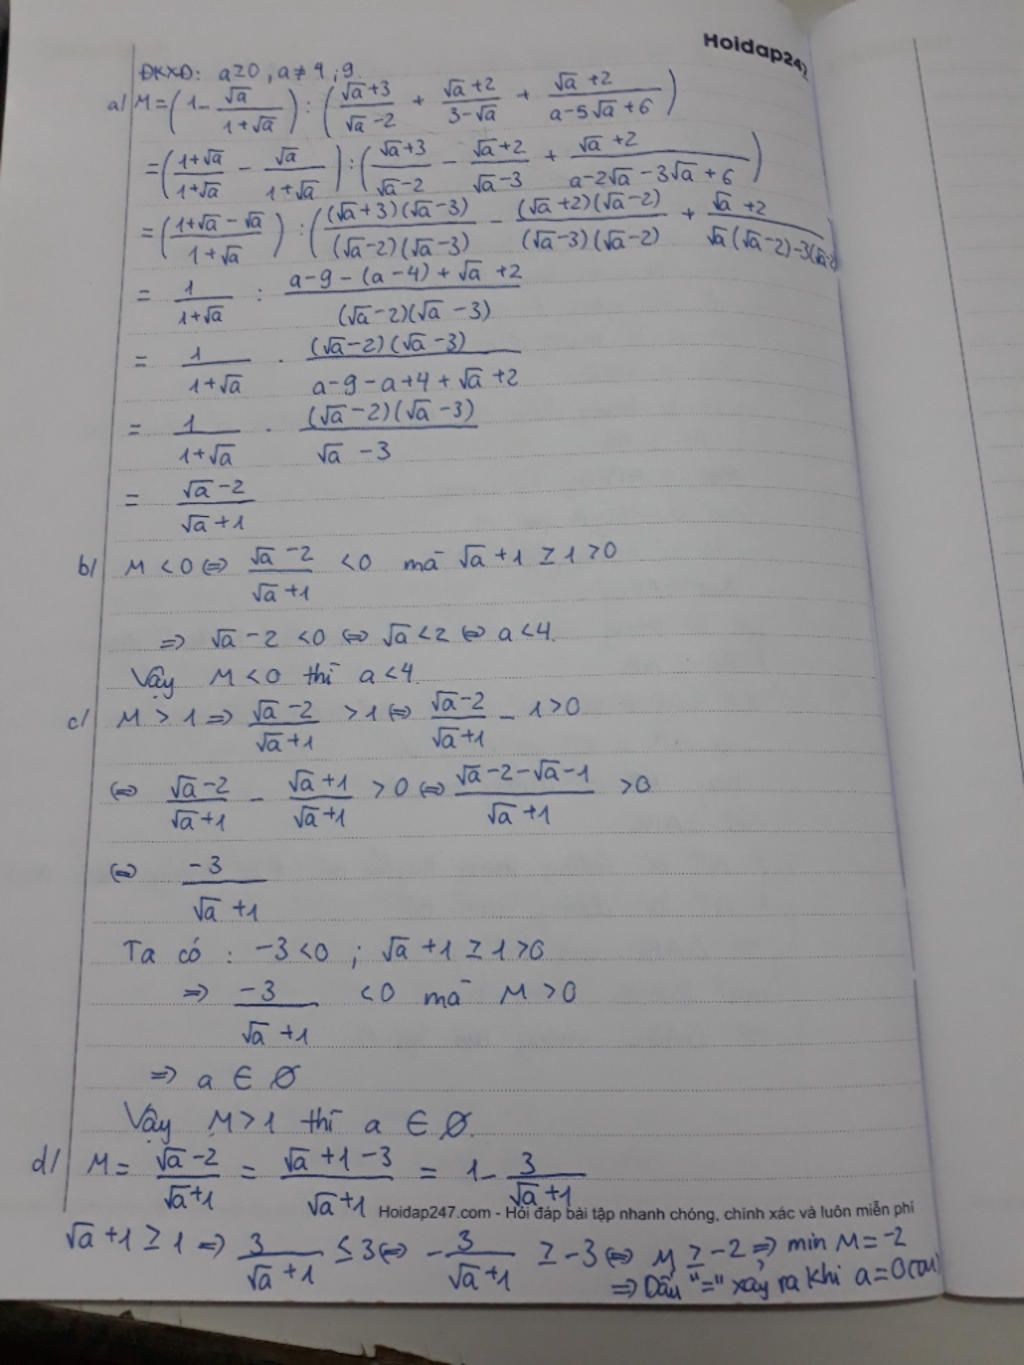 Hoidap247
ĐKXĐ: a≥0, a≠4; 9.
a/ M = (1 - √a/(1+√a)) : ((√a+3)/(√a-2) + (√a+2)/(3-√a) + (√a+2)/(a-5√a+6))
= ((1+√a)/(1+√a) - √a/(1+√a)) : ((√a+3)/(√a-2) - (√a+2)/(√a-3) + (√a+2)/(a-2√a-3√a+6))
= ((1+√a-√a)/(1+√a)) : ((√a+3)(√a-3)/((√a-2)(√a-3)) - (√a+2)(√a-2)/((√a-3)(√a-2)) + (√a+2)/(√a(√a-2)-3(√a-2
= 1/(1+√a) : (a-9-(a-4)+√a+2)/((√a-2)(√a-3))
= 1/(1+√a) . (√a-2)(√a-3)/(a-9-a+4+√a+2)
= 1/(1+√a) . (√a-2)(√a-3)/(√a-3)
= (√a-2)/(√a+1)
b/ M<0 ⇔ (√a-2)/(√a+1) <0 mà √a+1 ≥1>0
⇒ √a-2<0 ⇔ √a<2 ⇔ a<4.
Vậy M<0 thì a<4.
c/ M>1 ⇒ (√a-2)/(√a+1) >1 ⇔ (√a-2)/(√a+1) - 1>0
⇔ (√a-2)/(√a+1) - (√a+1)/(√a+1) >0 ⇔ (√a-2-√a-1)/(√a+1) >0
⇔ -3/(√a+1)
Ta có : -3<0 ; √a+1≥1>0
⇒ -3/(√a+1) <0 mà M>0
⇒ a ∈ Ø
Vậy M>1 thì a ∈ Ø.
d/ M = (√a-2)/(√a+1) = (√a+1-3)/(√a+1) = 1 - 3/(√a+1)
Hoidap247.com - Hỏi đáp bài tập nhanh chóng, chính xác và luôn miễn phí
√a+1≥1 ⇒ 3/(√a+1) ≤3 ⇔ -3/(√a+1) ≥-3 ⇔ M≥-2 ⇒ min M=-2
⇒ Dấu "=" xảy ra khi a=0